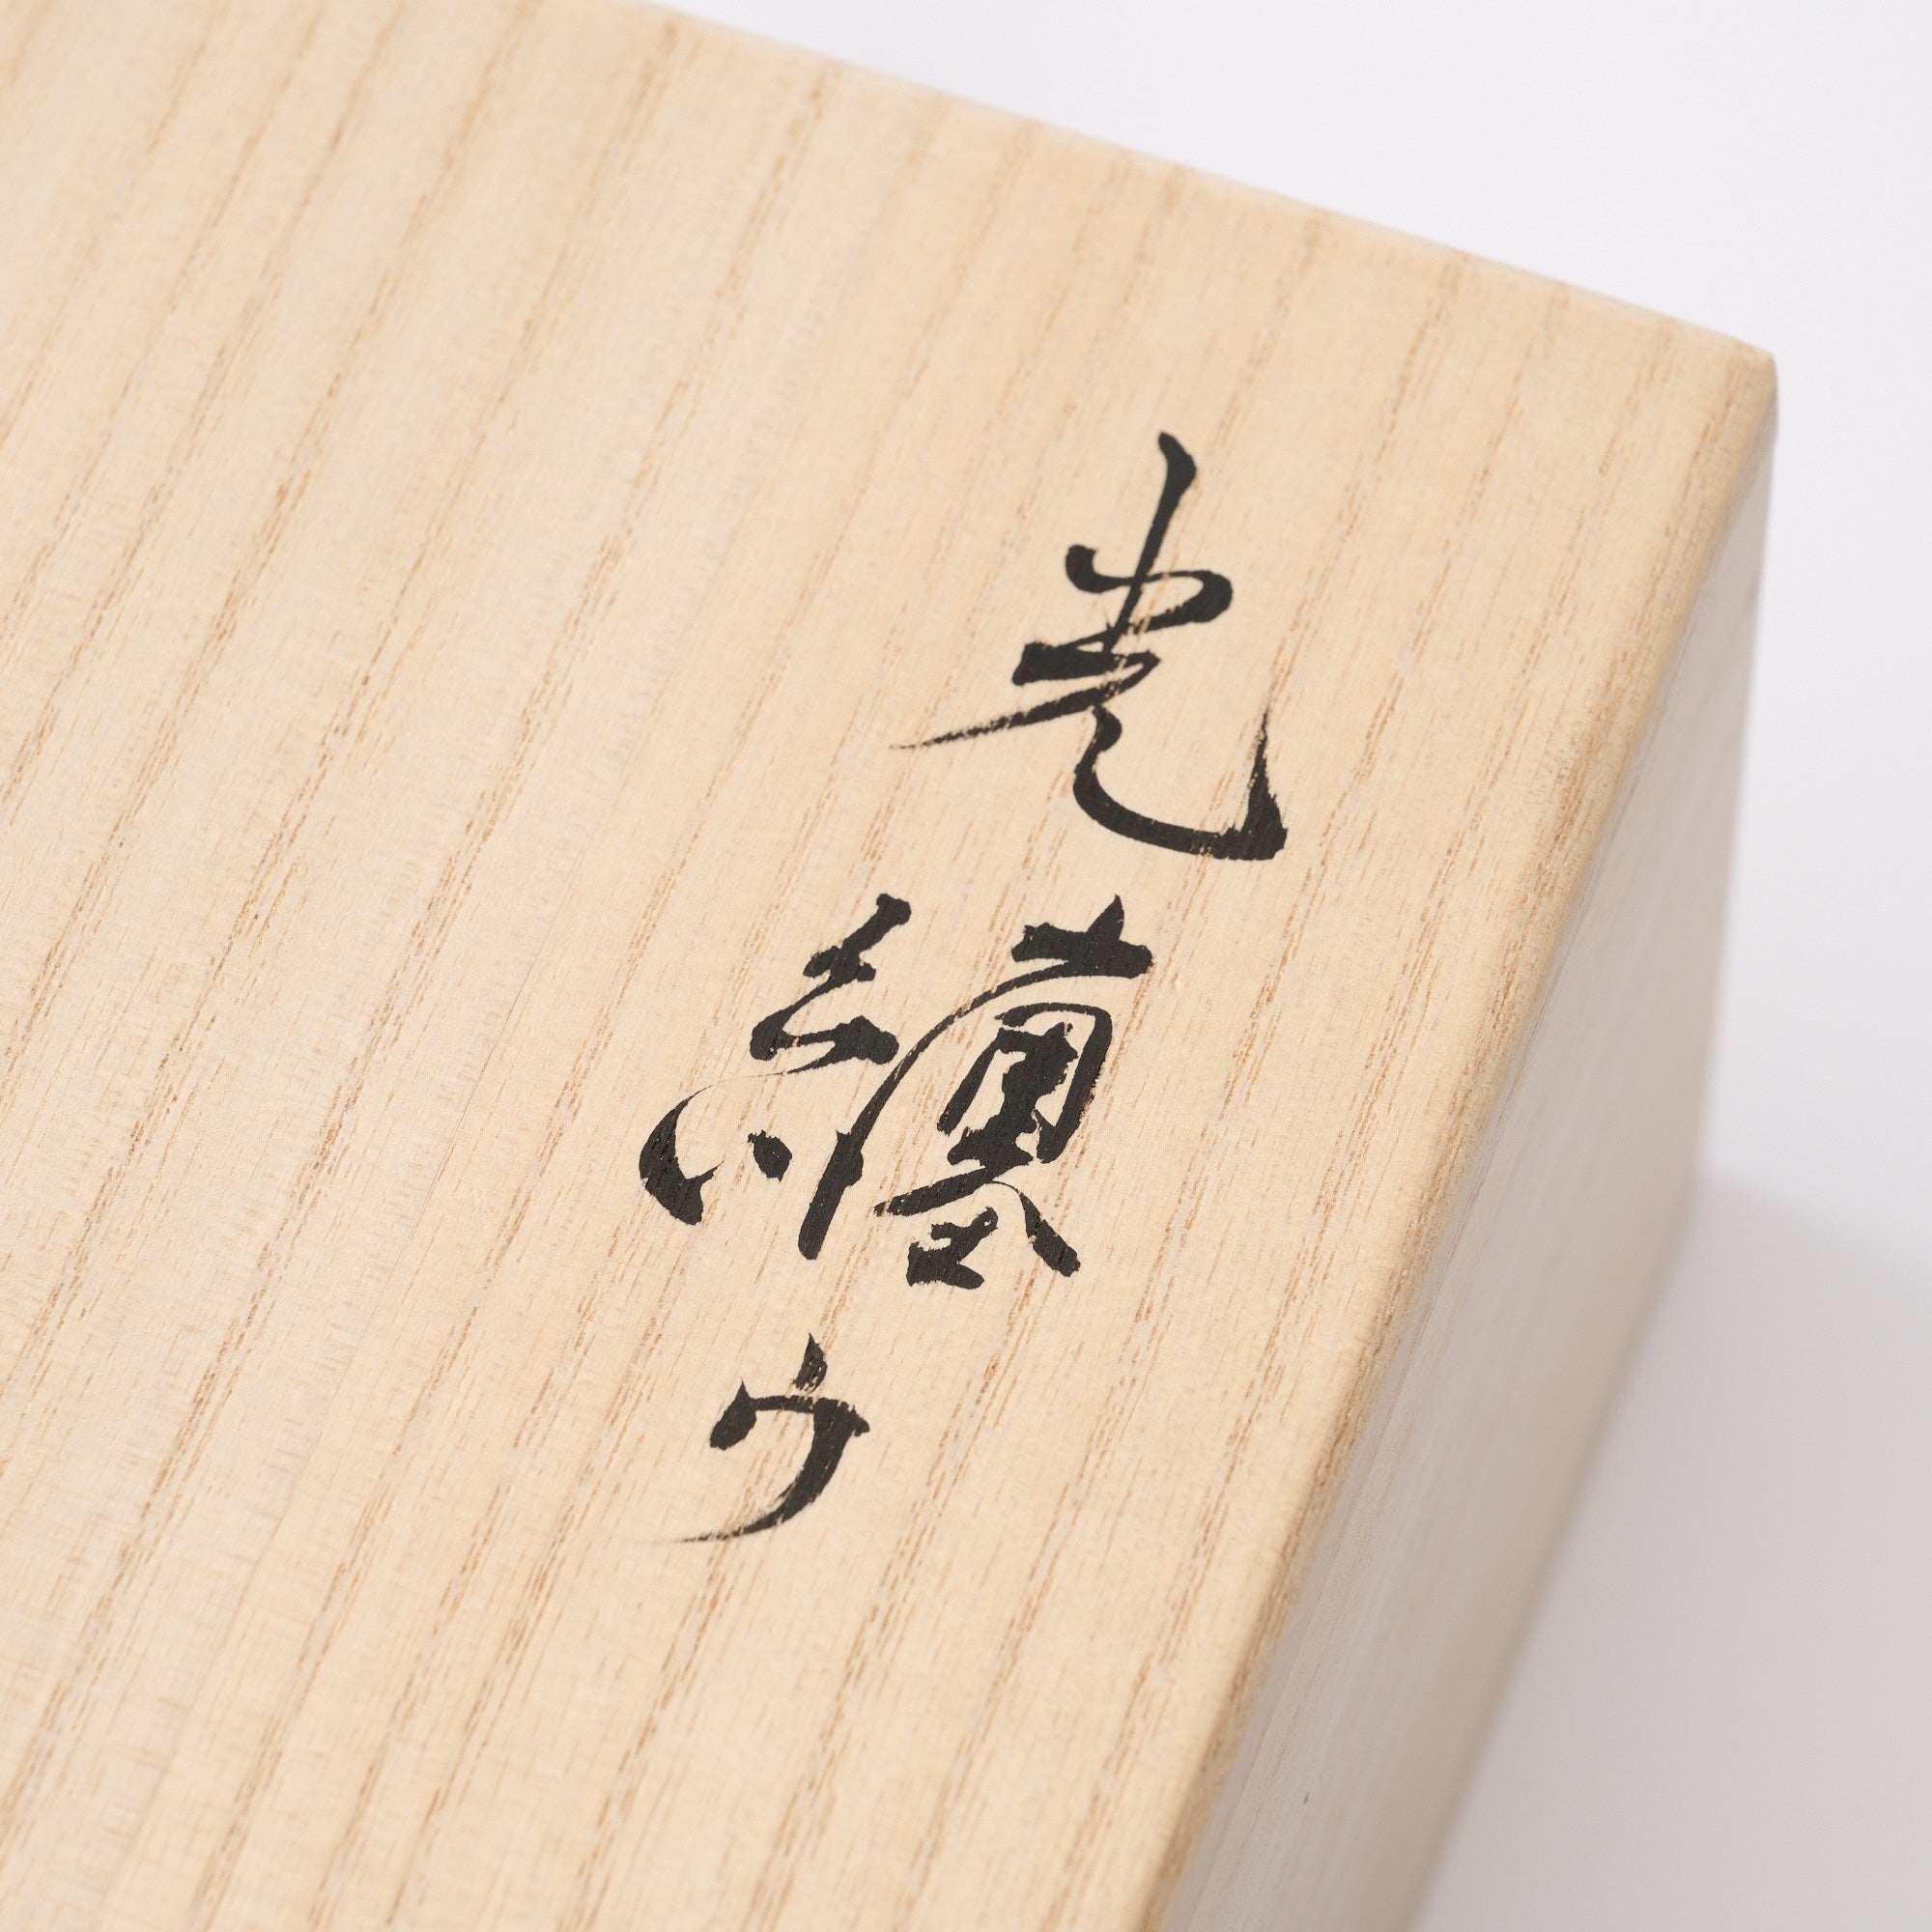 光纏ウ